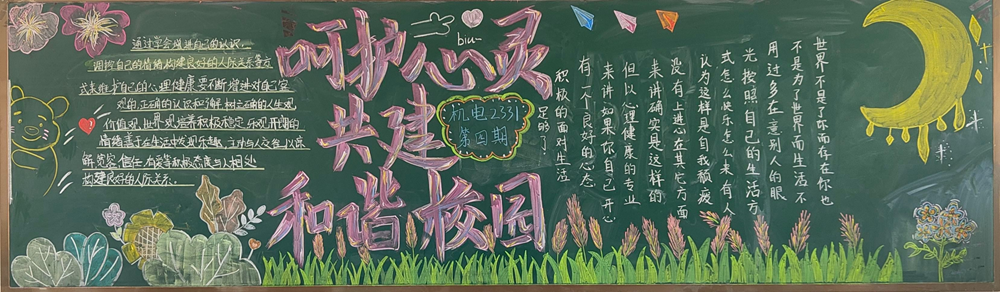 通过学会增进自己的认识
调控自己的情绪构建良好的人际关系等方
式来维护自己的心理健康要不断增进对自己客
观的正确的认识和了解树立正确的人生观
价值观世界观培养积极稳定乐观开朗的
情绪善于在生活中发现乐趣 主动与人交往以谅
解宽容信任友爱等积极态度与人相处
构建良好的人际关系.
呵护心灵
共建
和谐校园
biu~
机电2331
第四期
世界不是了你而存在你也
不是为了世界而生活不
用过多在意别人的眼
光按照自己的生活方
式怎么快乐怎么来有人
认为这样是自我颓废
没有上进心在其它方面
来讲确实是这样的
但以心理健康的专业
来讲如果你自己开心
有一个良好的心态
积极的面对生活
足够了